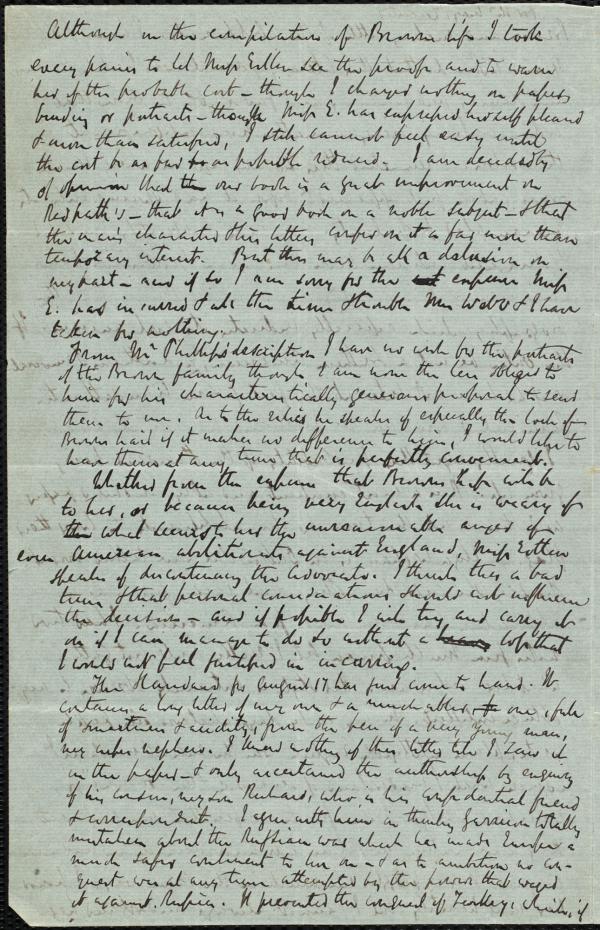 Although in the compilation of Brown's life I took
every pains to let Miss Estlin see the proofs and to warn
her of the probable cost - though I charged nothing on paper,
binding or portraits - though Miss E. has expressed herself pleased
& more than satisfied, I still cannot feel easy until
the cost be as far as possible reduced. I am decidedly
of opinion that the our book is a great improvement on
Redpath's - that it is a good book on a noble subject - & that
the man's character & his letters confer on it a far more than
temporary interest. But this may be all a delusion on
my part - and if so I am sorry for the expense Miss
E. has incurred & all the time & trouble Mrs Webb & I have
taken for nothing.
From Mr Phillips's description I have no wish for the portraits
of the Brown family though I am none the less obliged to
him for his characteristically generous proposal to send
them to me. As to the relics he speaks of especially the lock of
Brown's hair if it makes no difference to him, I would like to
have them at any time that is perfectly convenient.
Whether from the expense that Brown's life will be
to her, or because being very English she is weary of
the what seems to her the unreasonable anger of
even American abolitionists against England, Miss Estlin
speaks of discontinuing the Advocate. I think this a bad
time & that personal considerations should not influence
the decision - and if possible I will try and carry it
on if I can manage to do so without a loss that
I would not feel justified in incurring.
The Standard for August 17 has just come to hand. It
contains a long letter of my own & a much abler one, full
of smartness & acidity, from the pen of a very young man,
my nephew. I knew nothing of this letter till I saw it
in the paper - & only ascertained the authorship by enquiry
of his cousin, my son Richard, who is his confidential friend
& correspondent. I agree with him in thinking Garrison totally
mistaken about the Russian war which has made Europe a
much safer continent to live on - & as to ambition no con-
quest was at any time attempted by the powers that waged
it against Russia. It prevented the conquest of Turkey, which, if